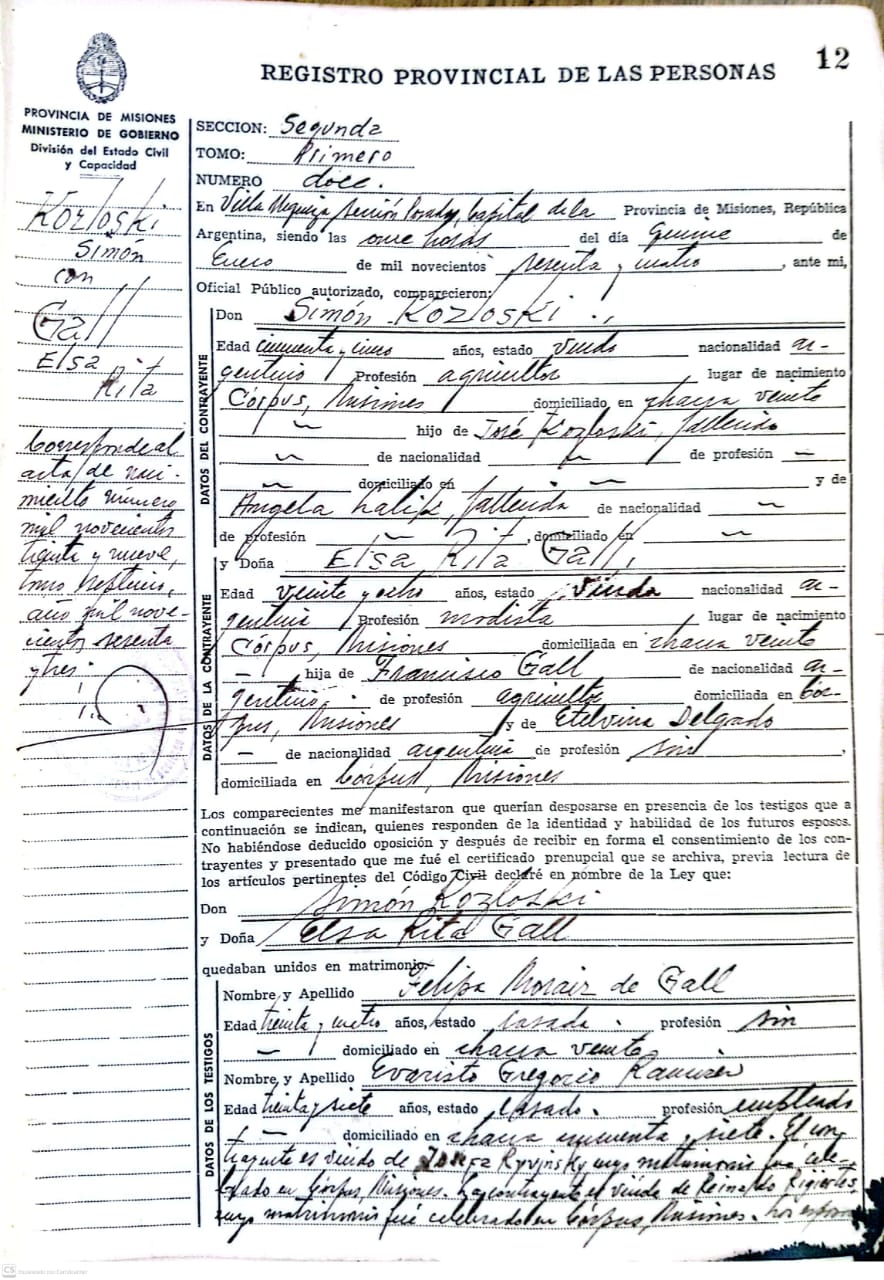 12
REGISTRO PROVINCIAL DE LAS PERSONAS
PROVINCIA DE MISIONES
MINISTERIO DE GOBIERNO
División del Estado Civil
y Capacidad
Kozloski
Simón
con
Gall
Elsa
Rita
Corresponde al
acta de naci-
miento número
mil novecientos
treinta y nueve,
tomo
año mil nove-
cientos sesenta
y tres.
SECCION: Segunda
TOMO: Primero
NUMERO doce.
En Villa Urquiza Sección Posadas, Capital de la Provincia de Misiones, República
Argentina, siendo las once horas del día quince de
Enero de mil novecientos sesenta y cuatro, ante mi,
Oficial Público autorizado, comparecieron:
DATOS DEL CONTRAYENTE
Don Simón Kozloski.
Edad cincuenta y cinco años, estado viudo nacionalidad ar-
gentino Profesión agricultor lugar de nacimiento
Córpus, Misiones domiciliado en chacra veinte
hijo de José Kozloski, fallecido
de nacionalidad de profesión
domiciliado en y de
Angela fallecida de nacionalidad
de profesión , domiciliado en
DATOS DE LA CONTRAYENTE
y Doña Elsa Rita Gall,
Edad veinte y ocho años, estado viuda nacionalidad ar-
gentina Profesión modista lugar de nacimiento
Córpus, Misiones domiciliada en chacra veinte
hija de Francisco Gall de nacionalidad ar-
gentino de profesión agricultor domiciliado en Cór-
pus, Misiones y de Etelvina Delgado
de nacionalidad argentina de profesión sin,
domiciliada en Córpus, Misiones
Los comparecientes me manifestaron que querían desposarse en presencia de los testigos que a
continuación se indican, quienes responden de la identidad y habilidad de los futuros esposos.
No habiéndose deducido oposición y después de recibir en forma el consentimiento de los con-
trayentes y presentado que me fué el certificado prenupcial que se archiva, previa lectura de
los artículos pertinentes del Código Civil declaré en nombre de la Ley que:
Don Simón Kozloski
y Doña Elsa Rita Gall
quedaban unidos en matrimonio.
DATOS DE LOS TESTIGOS
Nombre y Apellido Felipa de Gall
Edad treinta y cuatro años, estado casada. profesión sin
domiciliado en chacra veinte
Nombre y Apellido Evaristo Gregorio Ramírez
Edad treinta y siete años, estado casado. profesión empleado
domiciliado en chacra cincuenta y siete. El con
trayente es viudo de cuyo matrimonio fué cele-
brado en Córpus, Misiones. La contrayente es viuda de Reinaldo
cuyo matrimonio fué celebrado en Córpus, Misiones. Los esposos
CS